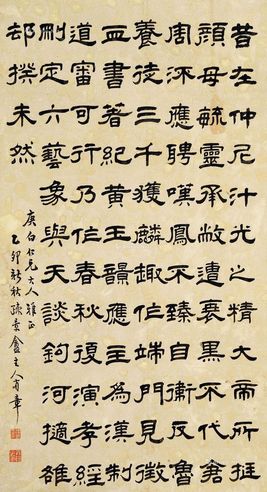 昔在仲尼汁光之精大帝所挺
顏母毓靈承敝遭衰黑不代倉
周流應聘嘆鳳不臻自衛反魯
養徒三千獲麟趣作端門見徵
血書著紀黃玉韻應主為漢制
道審可行乃作春秋復演孝經
刪定六藝象與天談鉤河擿雒
却揆未然
庚白仁兄大人雅正
乙卯新秋疎景盦主人